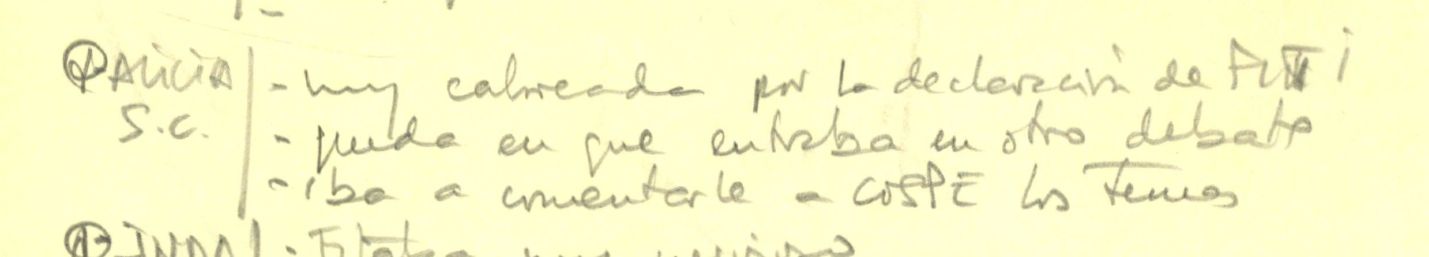 ALICIA S.C. - muy cabreada por la declaración de PUTTI
- queda en que entraba en otro debate
- iba a comentarle a COSPE los temas
INDA - Estaba muy